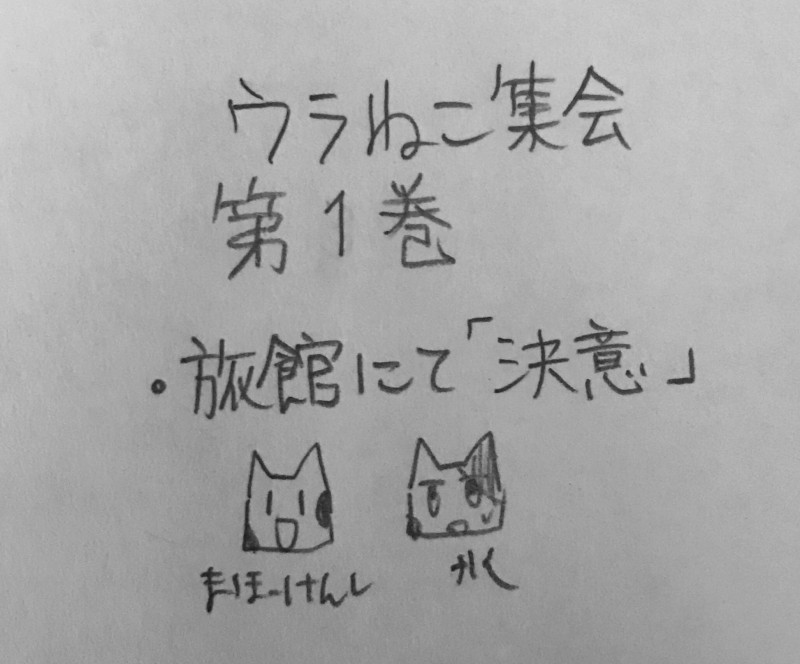 ウラねこ集会
第1巻
・旅館にて「決意」
まほーけんし